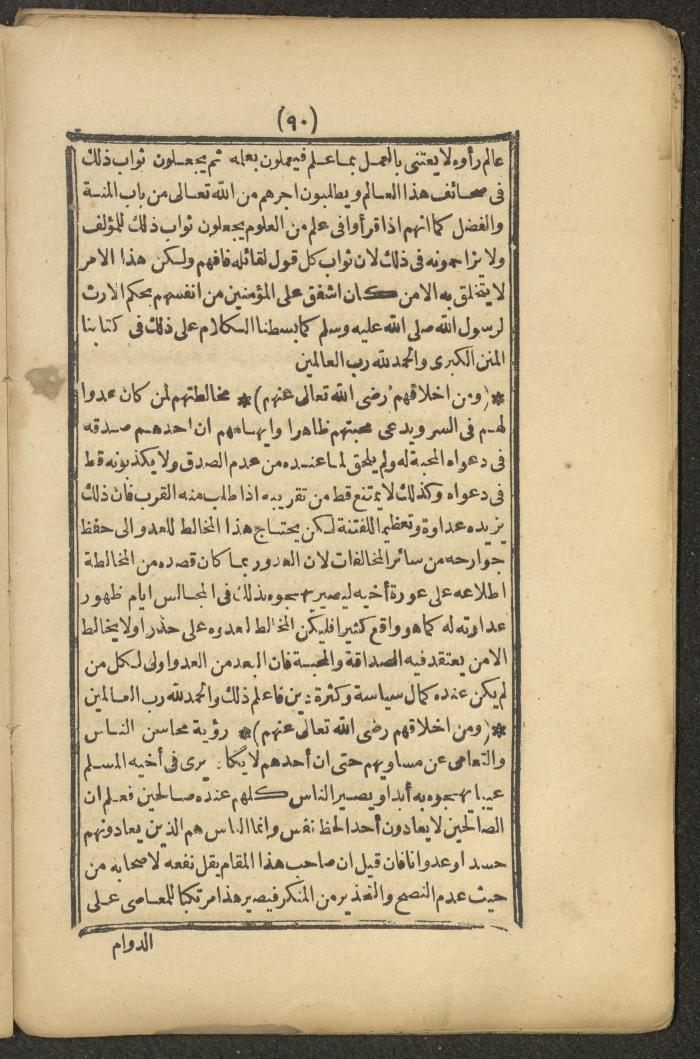 (٩٠)
عالم رأوه لا يعتنى بالعمل بما علم فيعملون بعلمه ثم يجعلون ثواب ذلك
فى صحائف هذا العالم ويطلبون اجرهم من الله تعالى من باب المنة
والفضل كما انهم اذا قرأوا فى علم من العلوم يجعلون ثواب ذلك للمؤلف
ولا يزاحمونه فى ذلك لان ثواب كل قول لقائله فافهم ولكن هذا الامر
لا يتخلق به الا من كان اشفق على المؤمنين من انفسهم بحكم الارث
لرسول الله صلى الله عليه وسلم كما بسطنا الكلام على ذلك فى كتابنا
المنن الكبرى والحمد لله رب العالمين
*(ومن اخلاقهم رضى الله تعالى عنهم)* مخالطتهم لمن كان عدوا
لهم فى السر ويدعى محبتهم ظاهرا وايهامهم ان احدهم صدقه
فى دعواه المحبة له ولم يلحق لما عنده من عدم الصدق ولا يكذبونه قط
فى دعواه وكذلك لا يمتنع قط من تقريبه اذا طلب منه القرب فان ذلك
يزيده عداوة وتعظيم اللفتنة لكن يحتاج هذا المخالط للعدو الى حفظ
جوارحه من سائر المخالفات لان العدو ربما كان قصده من المخالطة
اطلاعه على عورة أخيه ليصير يهجوه بذلك فى المجالس ايام ظهور
عداوته له كما هو واقع كثيرا فليكن المخالط لعدوه على حذر او لا يخالط
الا من يعتقد فيه الصداقة والمحبة فان البعد من العدو اولى لكل من
لم يكن عنده كمال سياسة وكثرة دين فاعلم ذلك والحمد لله رب العالمين
*(ومن اخلاقهم رضى الله تعالى عنهم)* رؤية محاسن الناس
والتعامى عن مساويهم حتى ان أحدهم لا يكاد يرى فى أخيه المسلم
عيبا يهجوه به أبدا ويصير الناس كلهم عنده صالحين فعلم ان
الصالحين لا يعادون أحدا لحظ نفس وانما الناس هم الذين يعادونهم
حسدا وعدوانا فان قيل ان صاحب هذا المقام يقل نفعه لاصحابه من
حيث عدم النصح والتحذير من المنكر فيصير هذا مرتكبا للمعاصى على
الدوام